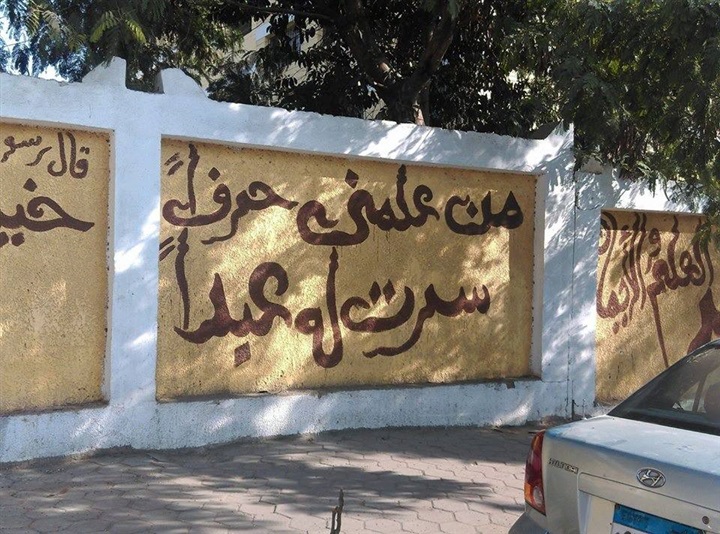 من علمني حرفاً
سرت له عبداً
قال رسو
خير
العلم و الإيما